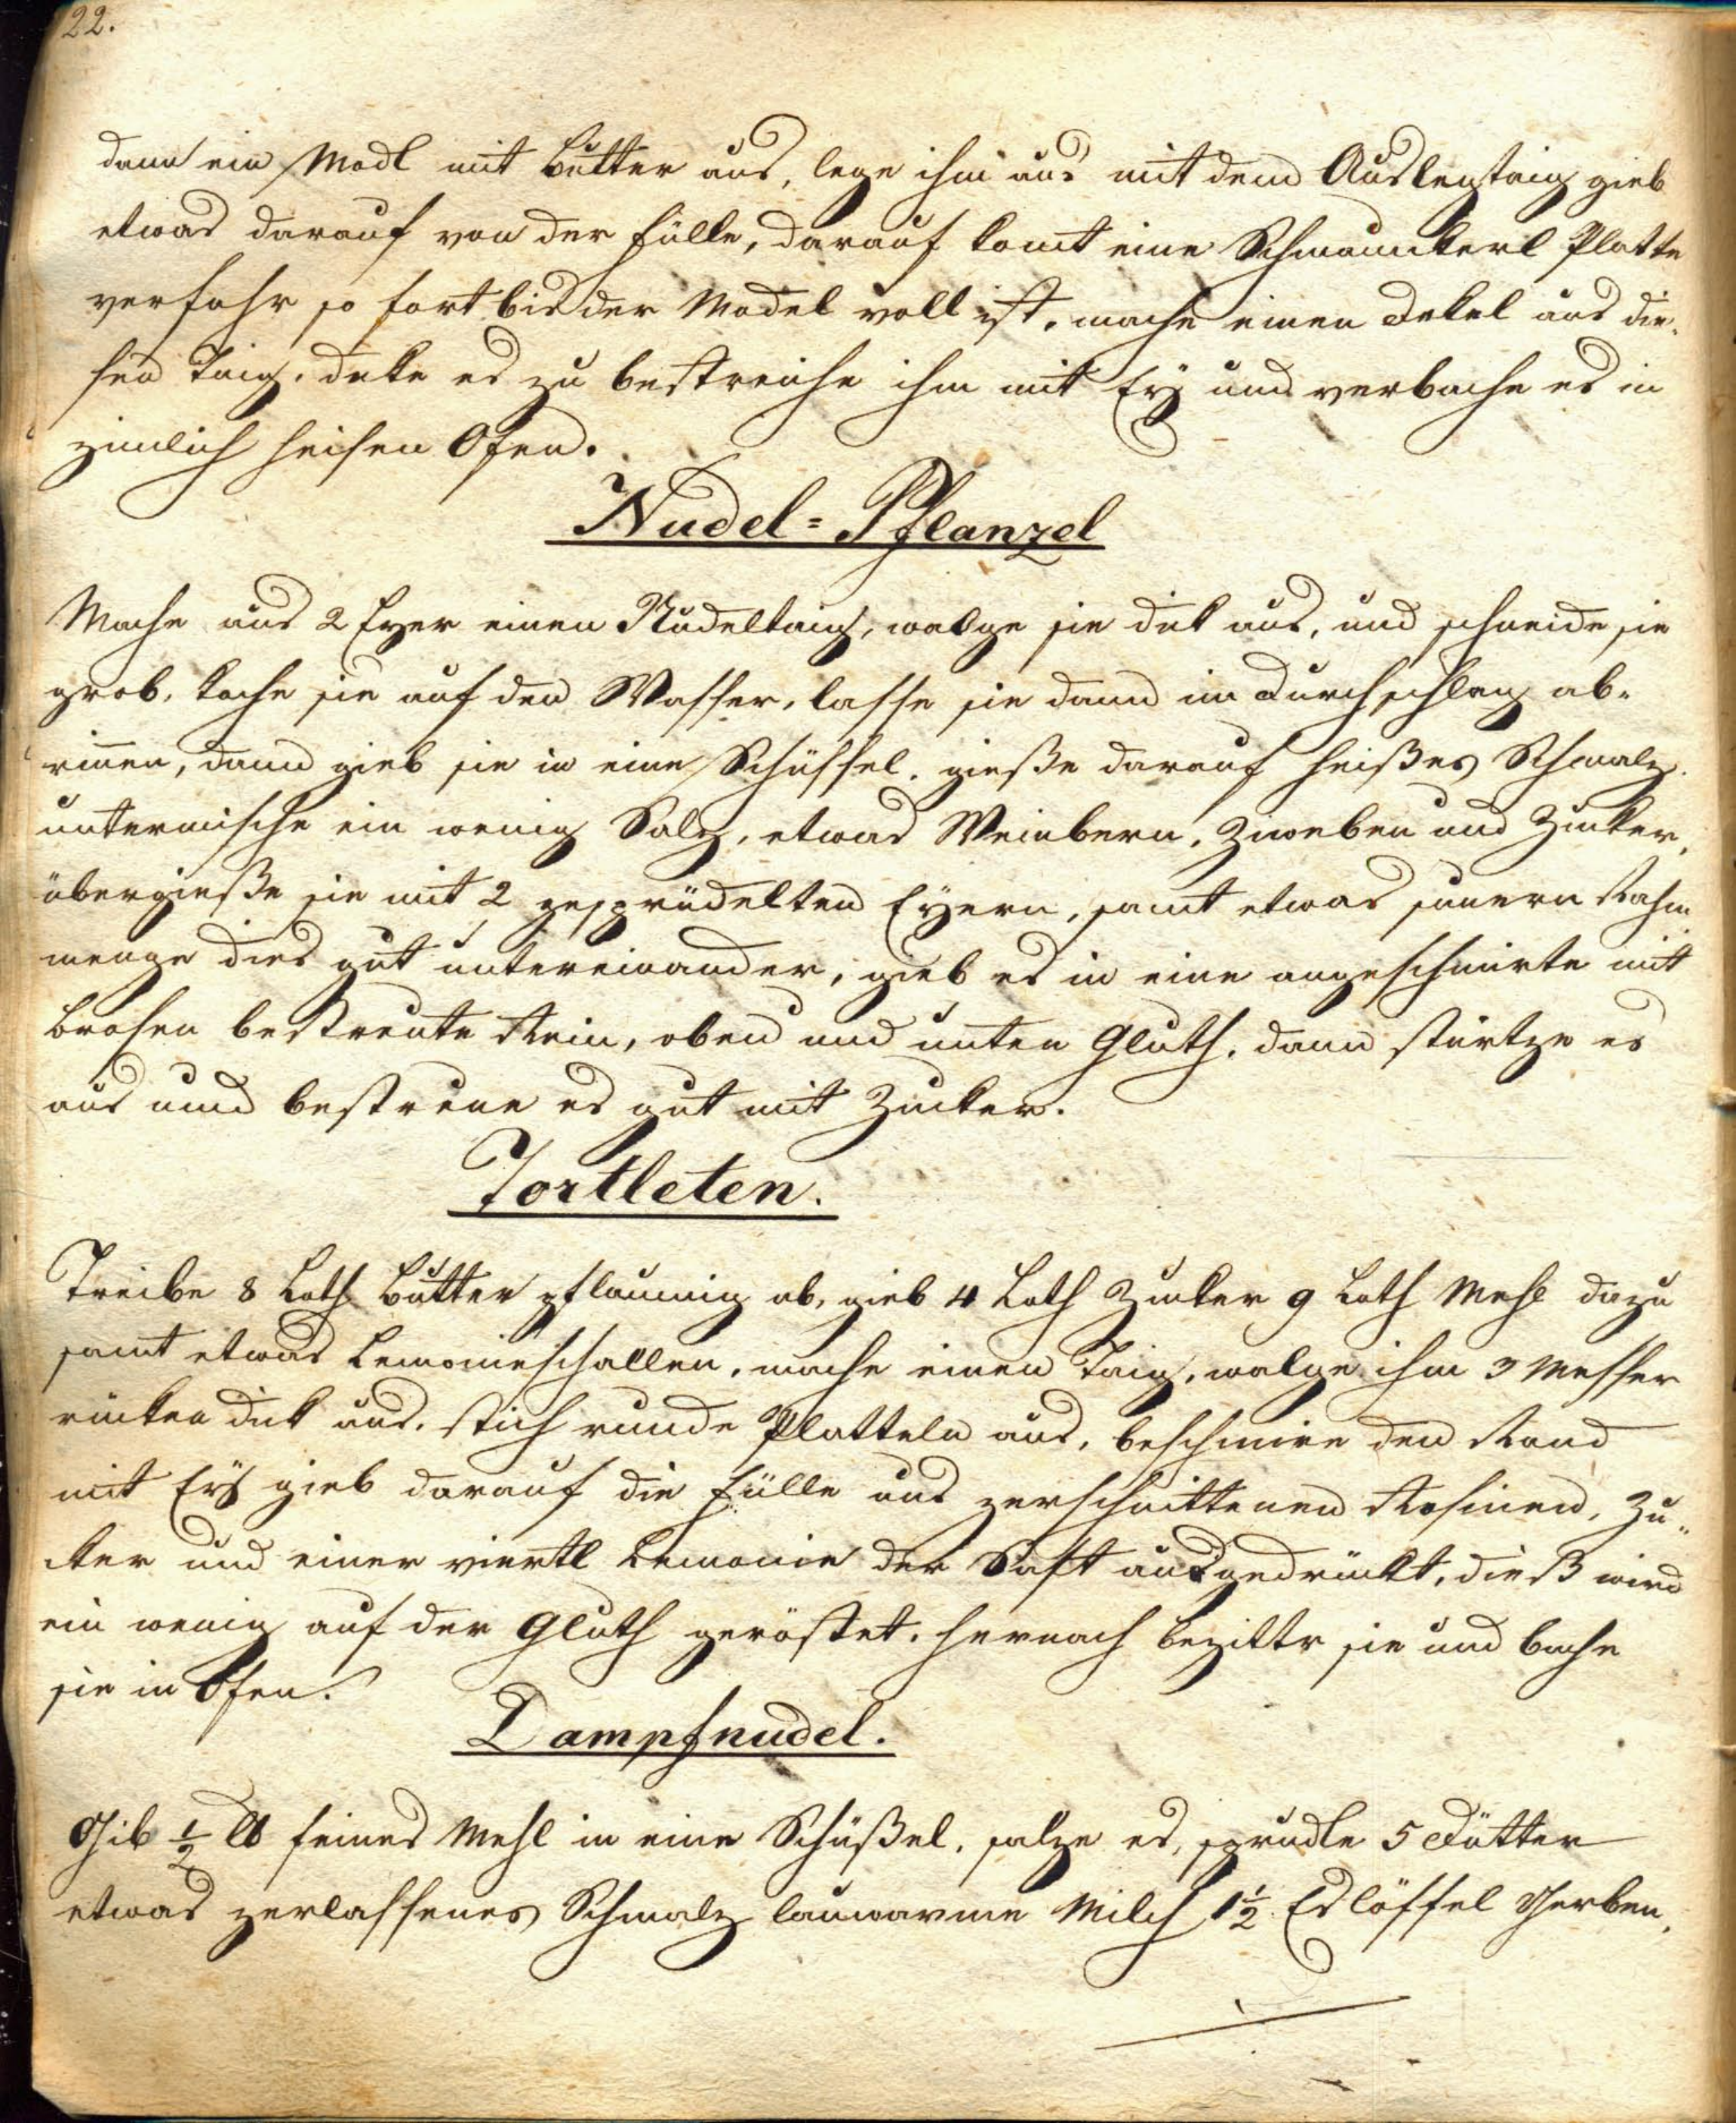 22.
dann ein Modl mit Butter aus, lege ihm aus mit dem Auslegtaig gieb
etwas darauf von der Fülle, darauf komt eine Schmankerl Platte
verfahr so fort bis der Model voll ist, mache einen Dekel aus die-
sen Taig, deke es zu bestreiche ihm mit Ey und verbache es in
zimlich heisen Ofen.
Nudel=Pflanzel
Mache aus 2 Eyer einen Nudeltaig, walge sie dik aus, und schneide sie
grob, koche sie auf den Wasser, lasse sie dann im Durchschlag ab-
rinen, dann gieb sie in eine Schüssel, gieße darauf heißes Schmalz,
untermische ein wenig Salz, etwas Weinbern, Zweben und Zucker,
übergieße sie mit 2 gesprüdelten Eyern, samt etwas sauern Rahm
menge dies gut untereinander, gieb es in eine angeschmirte mit
Brosen bestreute Rein, oben und unten Gluth, dann stürtze es
aus und bestreue es gut mit Zucker.
Tortleten.
Treibe 8 Loth Butter pflaumig ab, gieb 4 Loth Zucker 9 Loth Mehl dazu
samt etwas Lemonieschallen, mache einen Taig, walge ihm 3 Messer
rücken dik aus, stich runde Platteln aus, beschmire den Rand
mit Ey gieb darauf die Fülle aus zerschnittenen Rosinen, Zu-
cker und einer viertl Lemonie der Saft ausgedrückt, dieß wird
ein wenig auf der Gluth geröstet, hernach begittr sie und bache
sie in Ofen.
Dampfnudel.
Gib ½ ℔ feines Mehl in eine Schüßel, salze es, sprudle 5 Dötter
etwas zerlassenes Schmalz lauwarme Milch 1½ Eslöffel Gerben,